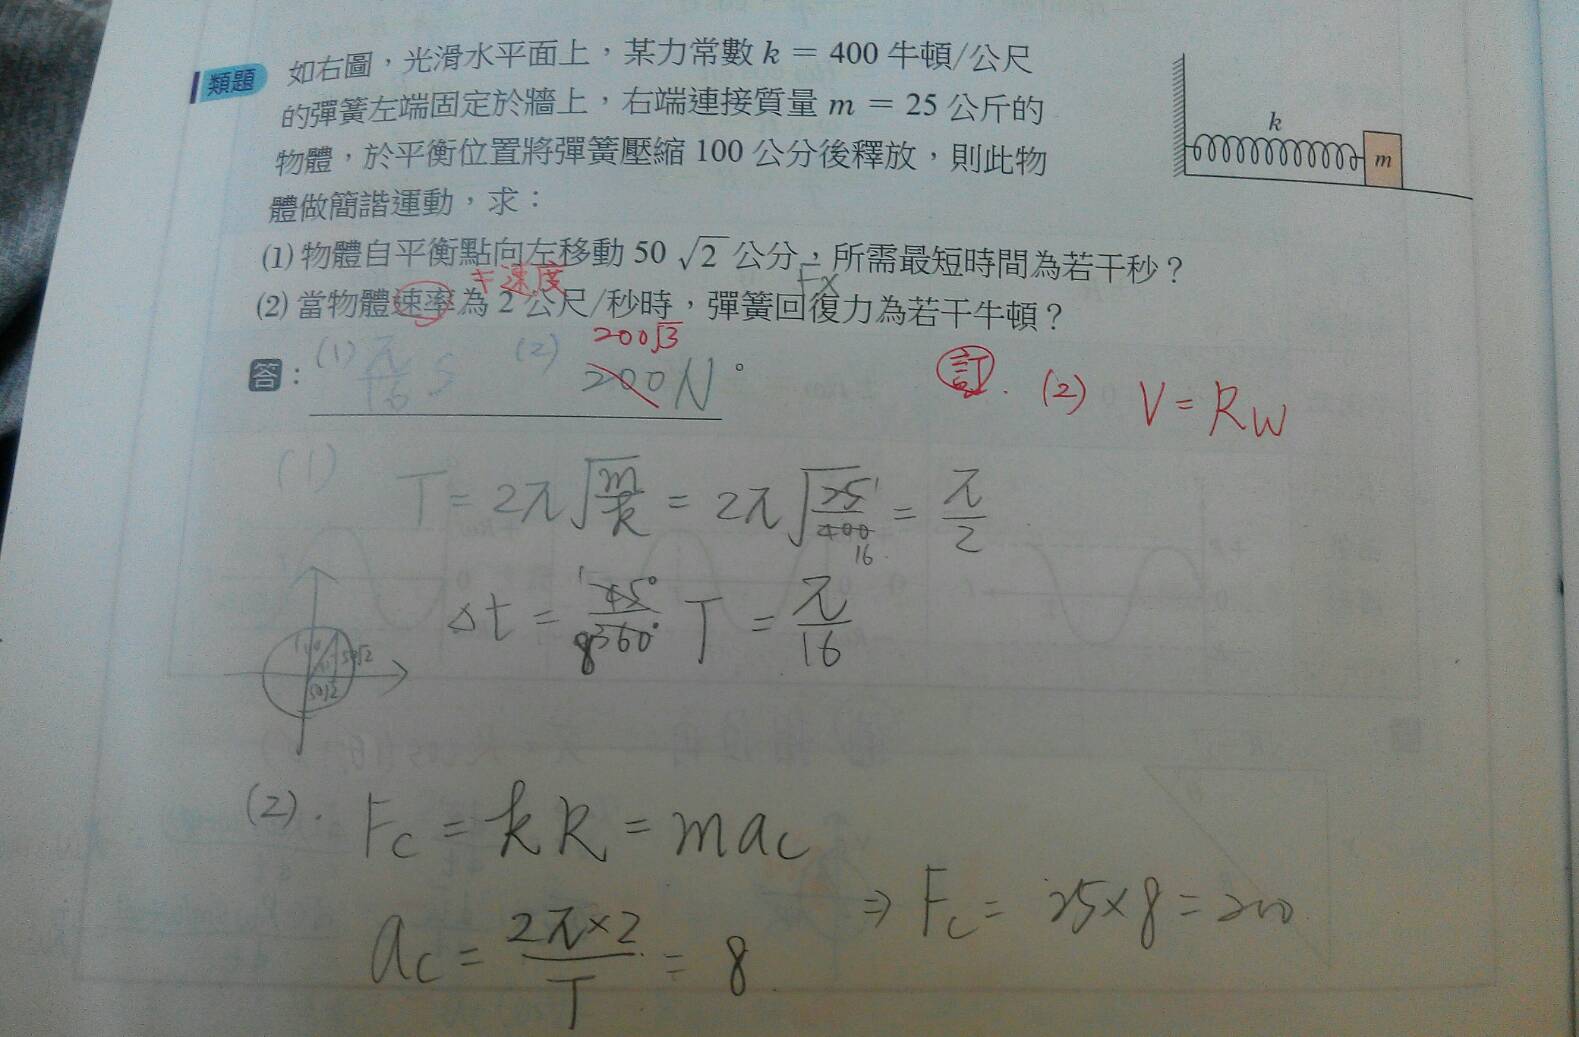 類題 如右圖，光滑水平面上，某力常數 k = 400 牛頓/公尺
的彈簧左端固定於牆上，右端連接質量 m = 25 公斤的
物體，於平衡位置將彈簧壓縮 100 公分後釋放，則此物
體做簡諧運動，求：
k
m
(1) 物體自平衡點向左移動 50 √2 公分，所需最短時間為若干秒？
≠速度 Fx
(2) 當物體速率為 2 公尺/秒時，彈簧回復力為若干牛頓？
200√3
答： (1) π/16 S (2) 200 N。
訂. (2) V = RW
(1) T = 2π√(m/k) = 2π√(25/400) = π/2
1 16
Δt = 45°/360° T = π/16
1 8
50√2
50√2
(2). Fc = kR = mac
ac = 2π×2/T = 8 ⇒ Fc = 25×8 = 200